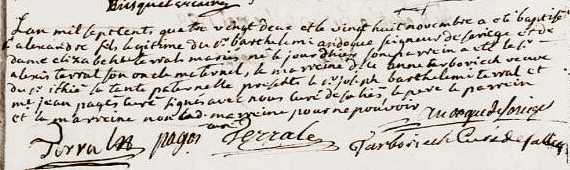 Lan mil sept cents quatre vingt deux et le vingt huit novembre a eté baptisé
alexandre fils legitime du sr. barthelemi andoque seigneur de seriege et de
dame elizabeth terral mariés né le jour dhier son parrein a eté le sr.
alexis terral son oncle maternel, la marreine dlle anne tarbouriech veuve
du sr. ithié sa tante paternelle presents le sr. joseph barthelemi terral et
me jean pagés curé signés avec nous curé de le pere le parrein et
et la marreine non lad. marreine pour ne pouvoir
andoque de seriege
Terral pagés Terral Tarbouriech Curé de